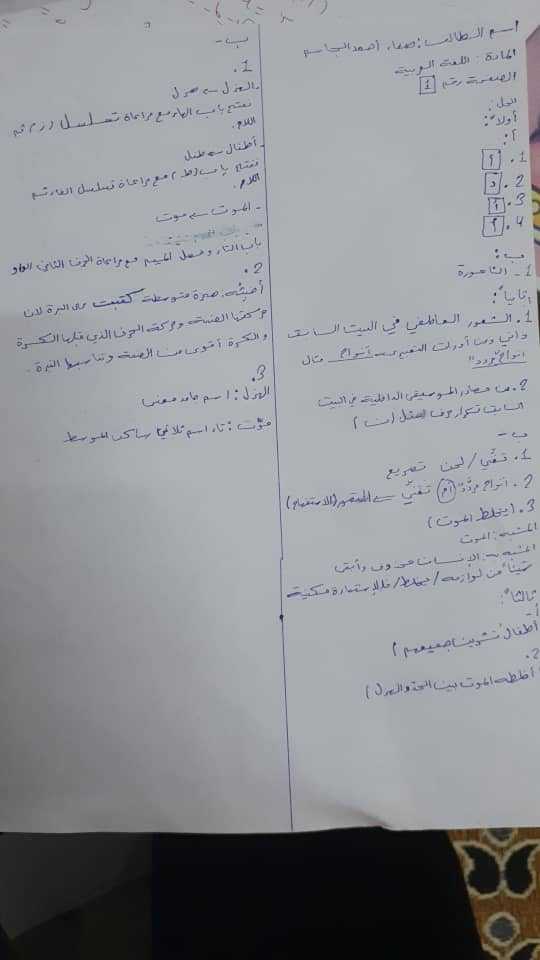 اسم الطالب: صفاء أحمد الجاسم
المادة: اللغة العربية
الصفحة رقم 1
الحل:
أولاً:
أ:
1. أ
2. د
3. أ
4. أ
ب:
1- الناعورة
ثانياً:
1. الشعور العاطفي في البيت السابق
ومن أدوات التعبير أنواح مثال
أنواح تردد"
2. من مصادر الموسيقى الداخلية في البيت
السابق تكرار حرف
ب-
1. تغنّي / لحن تصريع
2. أنواح تردّد أم تغنّي (الاستفهام)
3. (يخلط الموت)
المشبه: الموت
المشبه به: الإنسان محذوف وأبقى
شيئاً من لوازمه / يخلط / فالاستعارة مكنية
ثالثاً:
أ-
أطفال تشرين جميعهم
2.
أخلطه الموت بين الجد والهزل
ب-
1.
- الهزل ← هزل
نفتح باب الهاء مع مراعاة تسلسل ز ثم
اللام.
- أطفال ← طفل
نفتح باب ط مع مراعاة تسلسل الفاء ثم
اللام.
- الموت ← موت
باب التاء وفصل الميم مع مراعاة الحرف الثاني الواو
2.
همزة متوسطة كتبت على النبرة لأن
حركتها الضمة وحركة الحرف الذي قبلها الكسرة
والكسرة أقوى من الضمة وتناسبها النبرة.
3.
الهزل: اسم جامد معنى
موت: تاء اسم ثلاثي ساكن الوسط